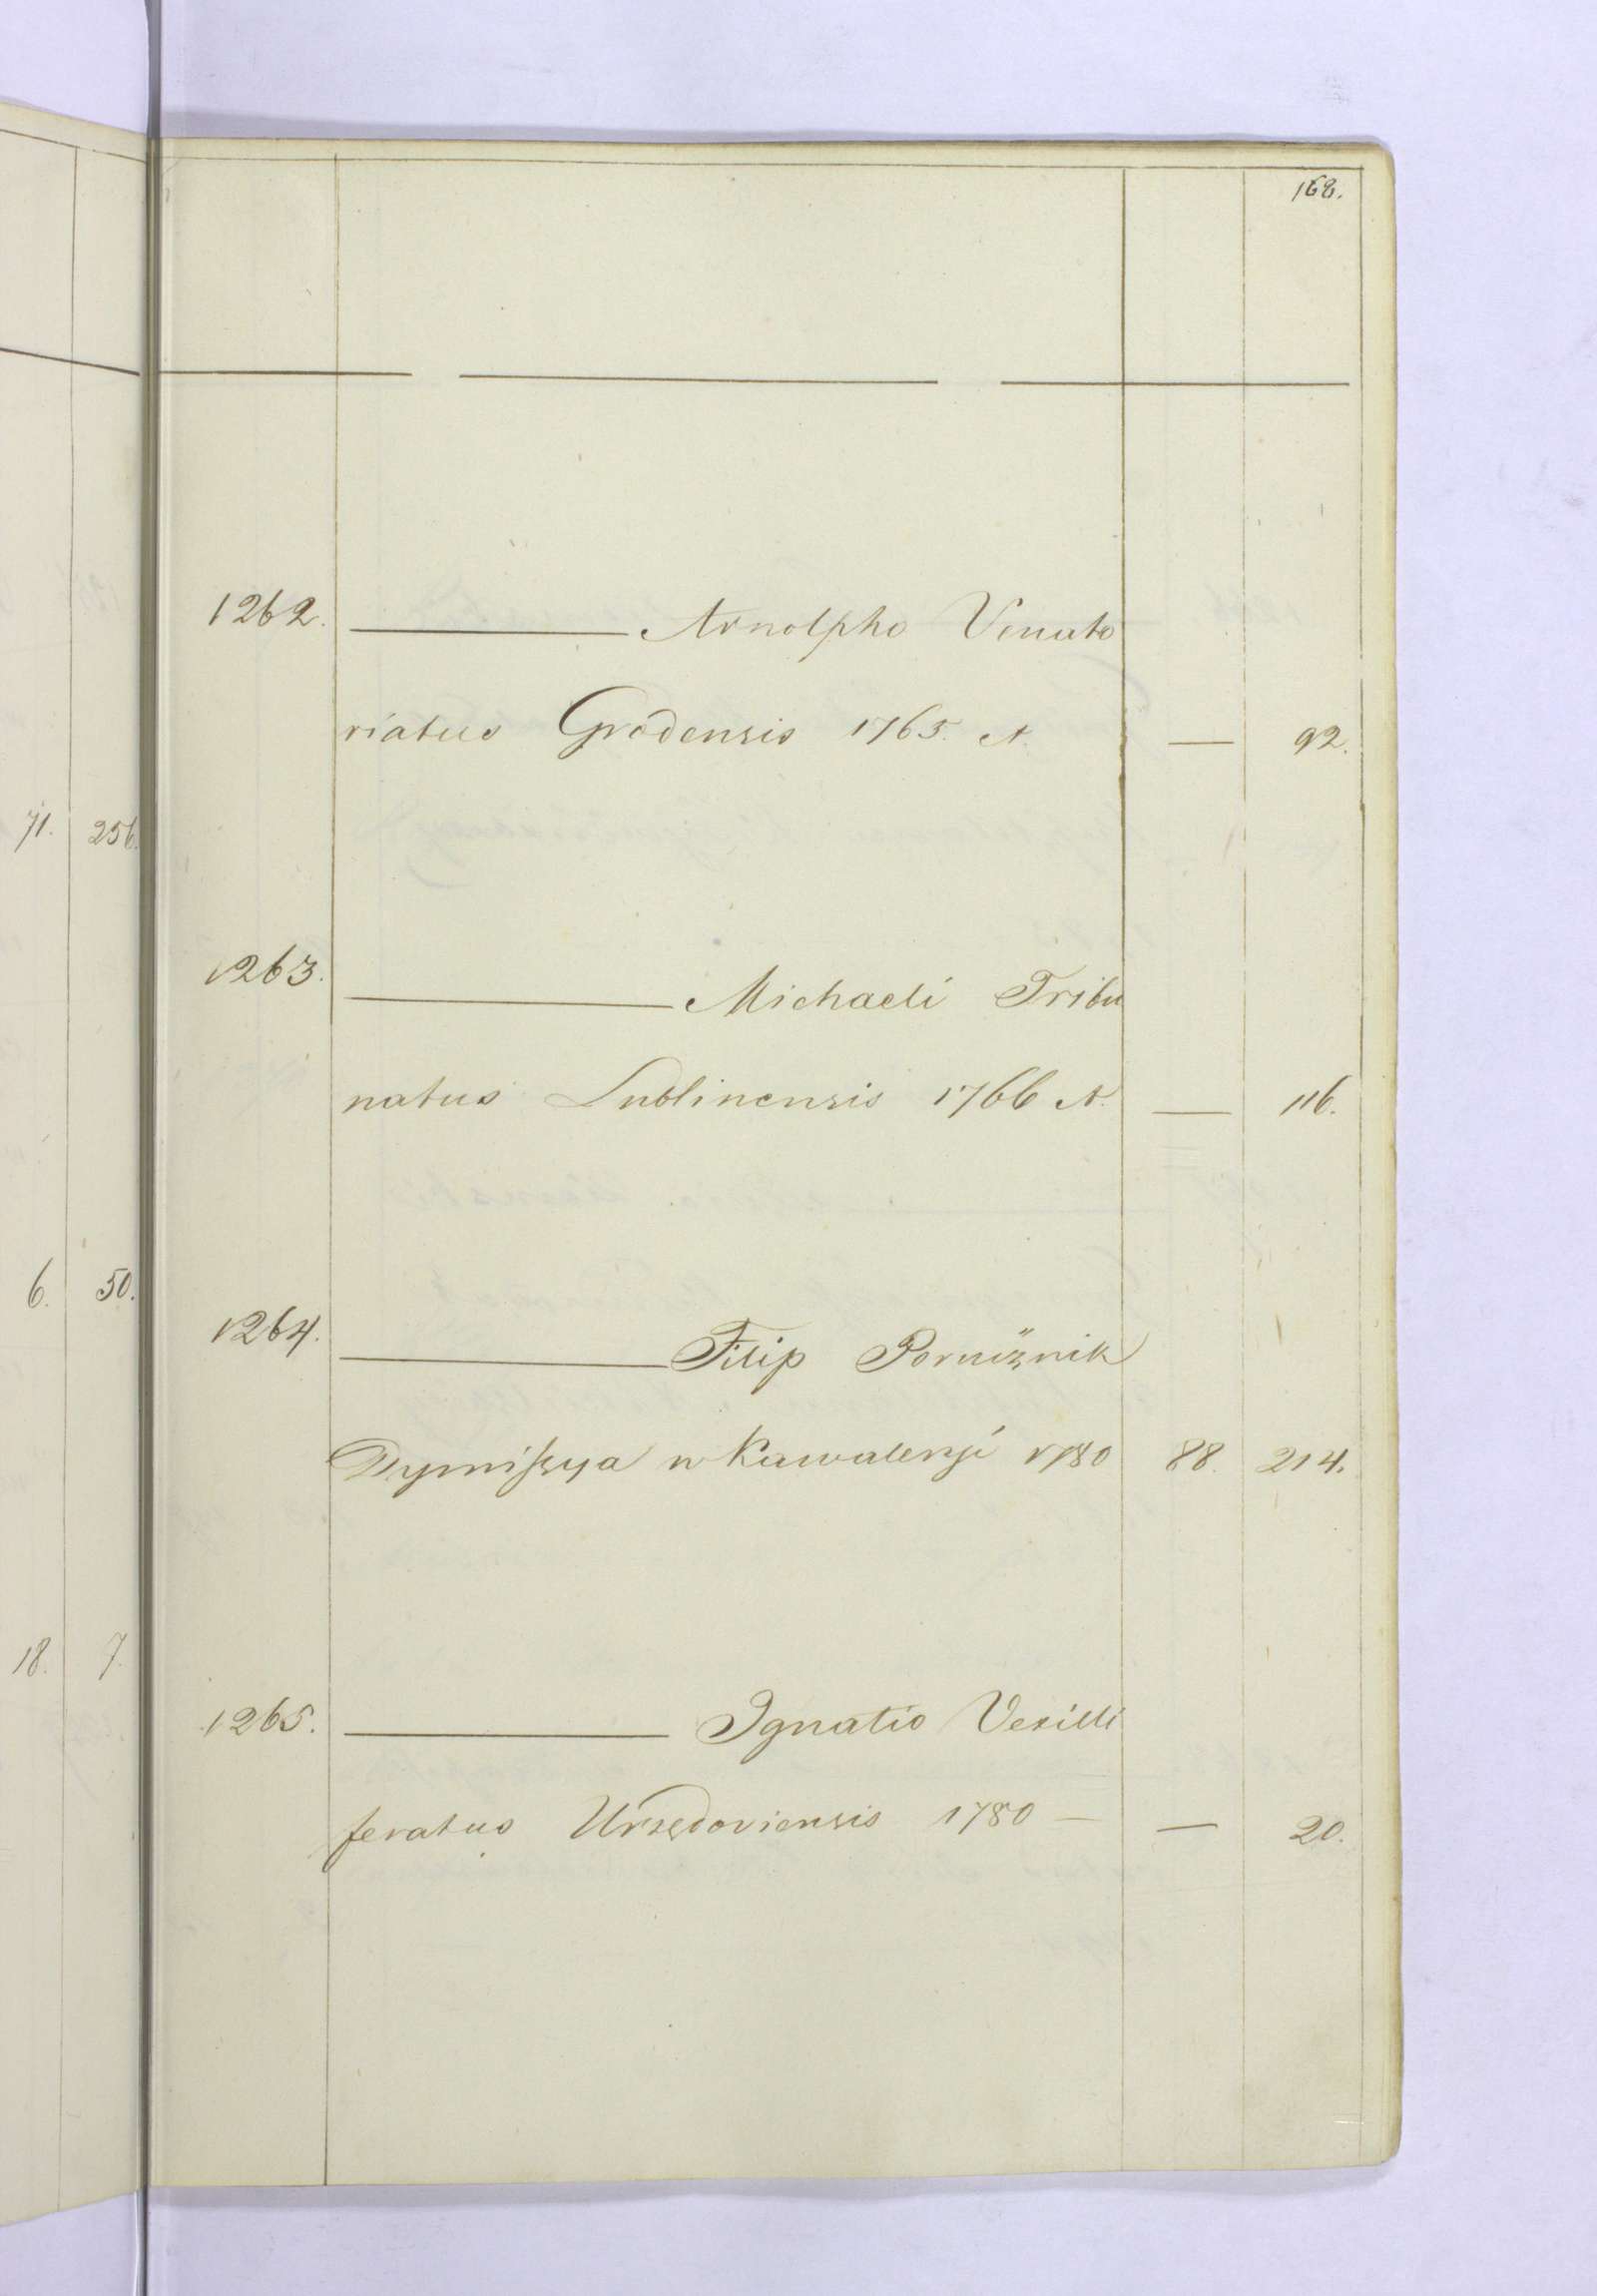 168.
1262. ——— Arnolpho Venato
riatus Grodensis 1765. A. — 92.
71. 256.
1263. ——— Michaeli Tribu
natus Lublinensis 1766 A. — 116.
6. 50.
1264. ——— Filip Porucznik
Dymissya w Kawaleryi 1780 88. 214.
18. 7.
1265. ——— Ignatio Vexilli
feratus Urzędoviensis 1780 — — 20.